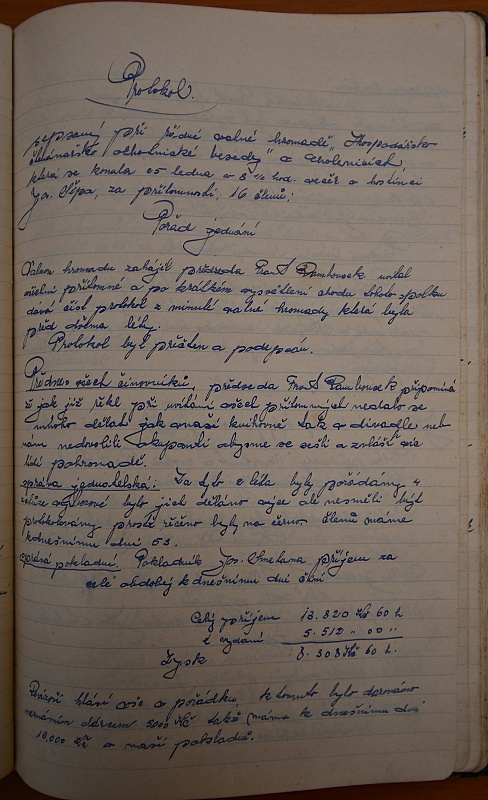 Protokol.
sepsaný při řádné valné hromadě „Hospodářsko
čtenářsko ochotnické besedy" v
která se konala 25 ledna v 8 ½ hod. večer v hostinci
Jos. Šípa, za přítomnosti, 16 členů;
Pořad jednání
Valnou hromadu zahájil předseda Frant Rambousek uvítal
všechny přítomné a po krátkém vysvětlení chodu tohoto spolku
dává číst protokol z minulé valné hromady která byla
před dvěma léty.
Protokol byl přečten a podepsán.
Přednes všech činovníků, předseda Frant Rambousek připomíná
že jak již řekl při uvítání všech přítomných nedalo se
mnoho dělati jak v naší knihovně tak v divadle neb
nám nedovolili okupanti abysme se sešli a zvláště více
lidí pohromadě.
zpráva jednatelská: Za tyto 2 léta byly pořádány 4
schůze výborové bylo jich děláno více ale nesměli být
protokolovány prostě řečeno byly na černo. Členů máme
k dnešnímu dni 53.
zpráva pokladní. Pokladník Jos. Smetana příjem za
celé období k dnešnímu dni činí
Celý příjem 13.820 Kč 60 h
vydání 5.512 „ 00 „
Zysk 8.308 Kč 60 h.
Revizoři hlásí vše v pořádku, k tomuto bylo darováno
neznámým dárcem 5000 Kč takže máme k dnešnímu dni
13.000 Kč v naší pokladně.